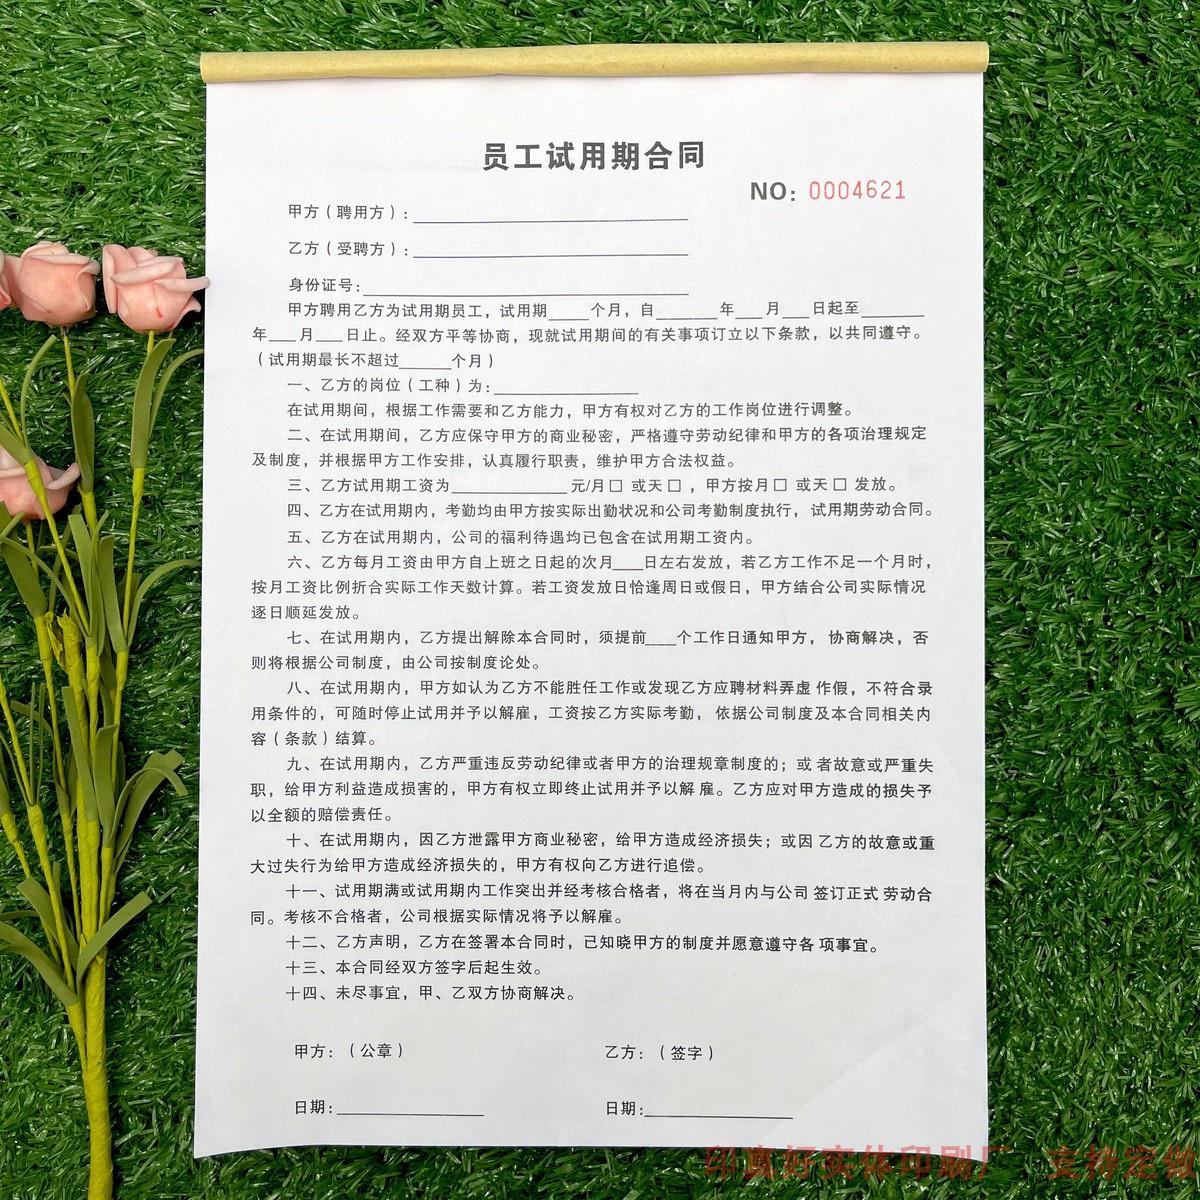 员工试用期合同
NO：0004621
甲方（聘用方）：____________
乙方（受聘方）：____________
身份证号：____________
甲方聘用乙方为试用期员工，试用期____个月，自______年___月___日起至______
年___月___日止。经双方平等协商，现就试用期间的有关事项订立以下条款，以共同遵守。
（试用期最长不超过_____个月）
一、乙方的岗位（工种）为：____________
在试用期间，根据工作需要和乙方能力，甲方有权对乙方的工作岗位进行调整。
二、在试用期间，乙方应保守甲方的商业秘密，严格遵守劳动纪律和甲方的各项治理规定
及制度，并根据甲方工作安排，认真履行职责，维护甲方合法权益。
三、乙方试用期工资为____________元/月□ 或天□，甲方按月□ 或天□ 发放。
四、乙方在试用期内，考勤均由甲方按实际出勤状况和公司考勤制度执行，试用期劳动合同。
五、乙方在试用期内，公司的福利待遇均已包含在试用期工资内。
六、乙方每月工资由甲方自上班之日起的次月___日左右发放，若乙方工作不足一个月时，
按月工资比例折合实际工作天数计算。若工资发放日恰逢周日或假日，甲方结合公司实际情况
逐日顺延发放。
七、在试用期内，乙方提出解除本合同时，须提前___个工作日通知甲方， 协商解决，否
则将根据公司制度，由公司按制度论处。
八、在试用期内，甲方如认为乙方不能胜任工作或发现乙方应聘材料弄虚 作假，不符合录
用条件的，可随时停止试用并予以解雇，工资按乙方实际考勤， 依据公司制度及本合同相关内
容（条款）结算。
九、在试用期内，乙方严重违反劳动纪律或者甲方的治理规章制度的；或 者故意或严重失
职，给甲方利益造成损害的，甲方有权立即终止试用并予以解 雇。乙方应对甲方造成的损失予
以全额的赔偿责任。
十、在试用期内，因乙方泄露甲方商业秘密，给甲方造成经济损失；或因 乙方的故意或重
大过失行为给甲方造成经济损失的，甲方有权向乙方进行追偿。
十一、试用期满或试用期内工作突出并经考核合格者，将在当月内与公司 签订正式 劳动合
同。考核不合格者，公司根据实际情况将予以解雇。
十二、乙方声明，乙方在签署本合同时，已知晓甲方的制度并愿意遵守各 项事宜。
十三、本合同经双方签字后起生效。
十四、未尽事宜，甲、乙双方协商解决。
甲方：（公章） 乙方：（签字）
日期：____________ 日期：____________
印真好实体印刷厂 支持定做